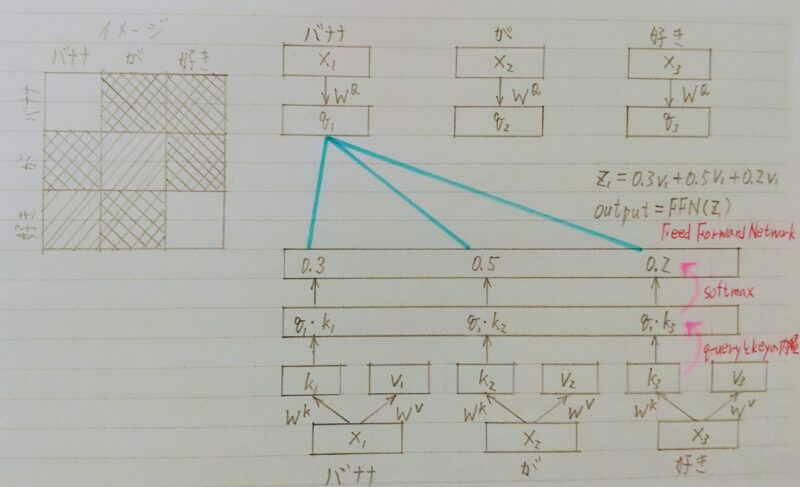 イメージ
バナナ が 好き
バナナ
が
好き
バナナ が 好き
x₁ x₂ x₃
W^Q W^Q W^Q
q₁ q₂ q₃
z₁ = 0.3v₁ + 0.5v₁ + 0.2v₁
output = FFN(z₁)
Feed Forward Network
0.3 0.5 0.2
softmax
q₁・k₁ q₁・k₂ q₁・k₃
queryとkeyの内積
k₁ v₁ k₂ v₂ k₃ v₃
W^k W^v W^k W^v W^k W^v
x₁ x₂ x₃
バナナ が 好き